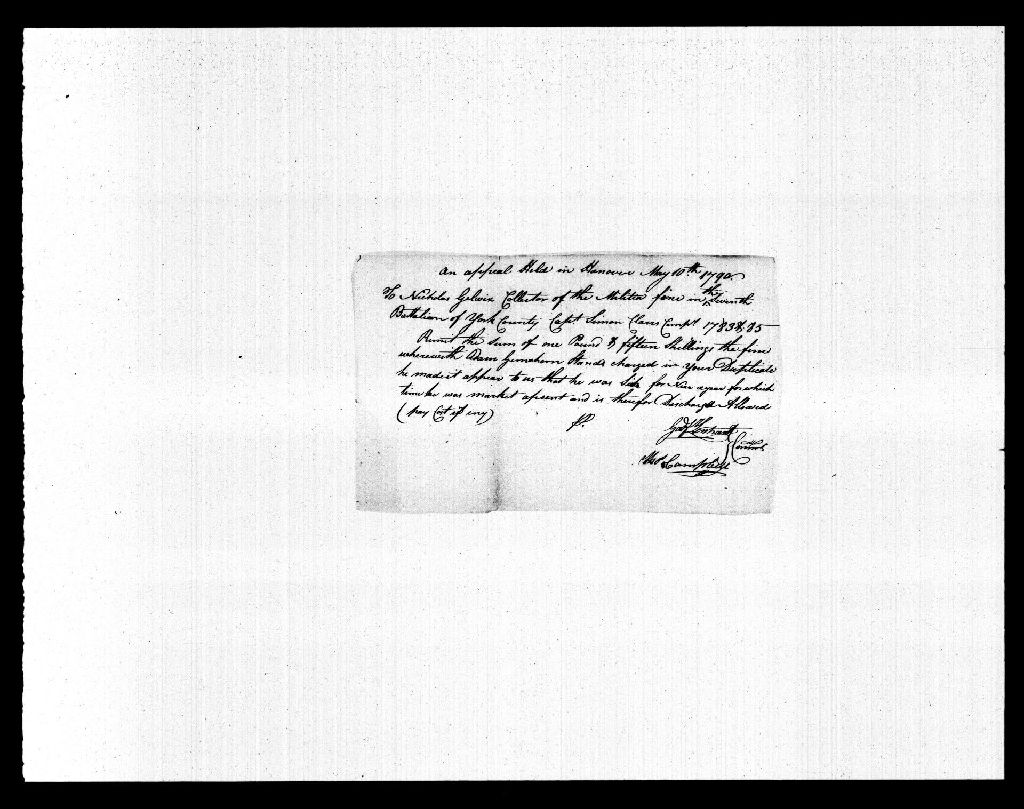 An appeal Held in Hanover May 10th 1790
To Nicholas Gelwix Collector of the Militia fine in the Seventh
Battalion of York County Capt Simon Clans Compt 1783 & 85
Remit the Sum of one Pound & fifteen Shillings the fine
wherewith Adam Stands charged in your Duplicate
he made it appear to us that he was Sick for Six a year for which
time he was market apsent and is therefor Discharge Allowed
(pay Cost if any)